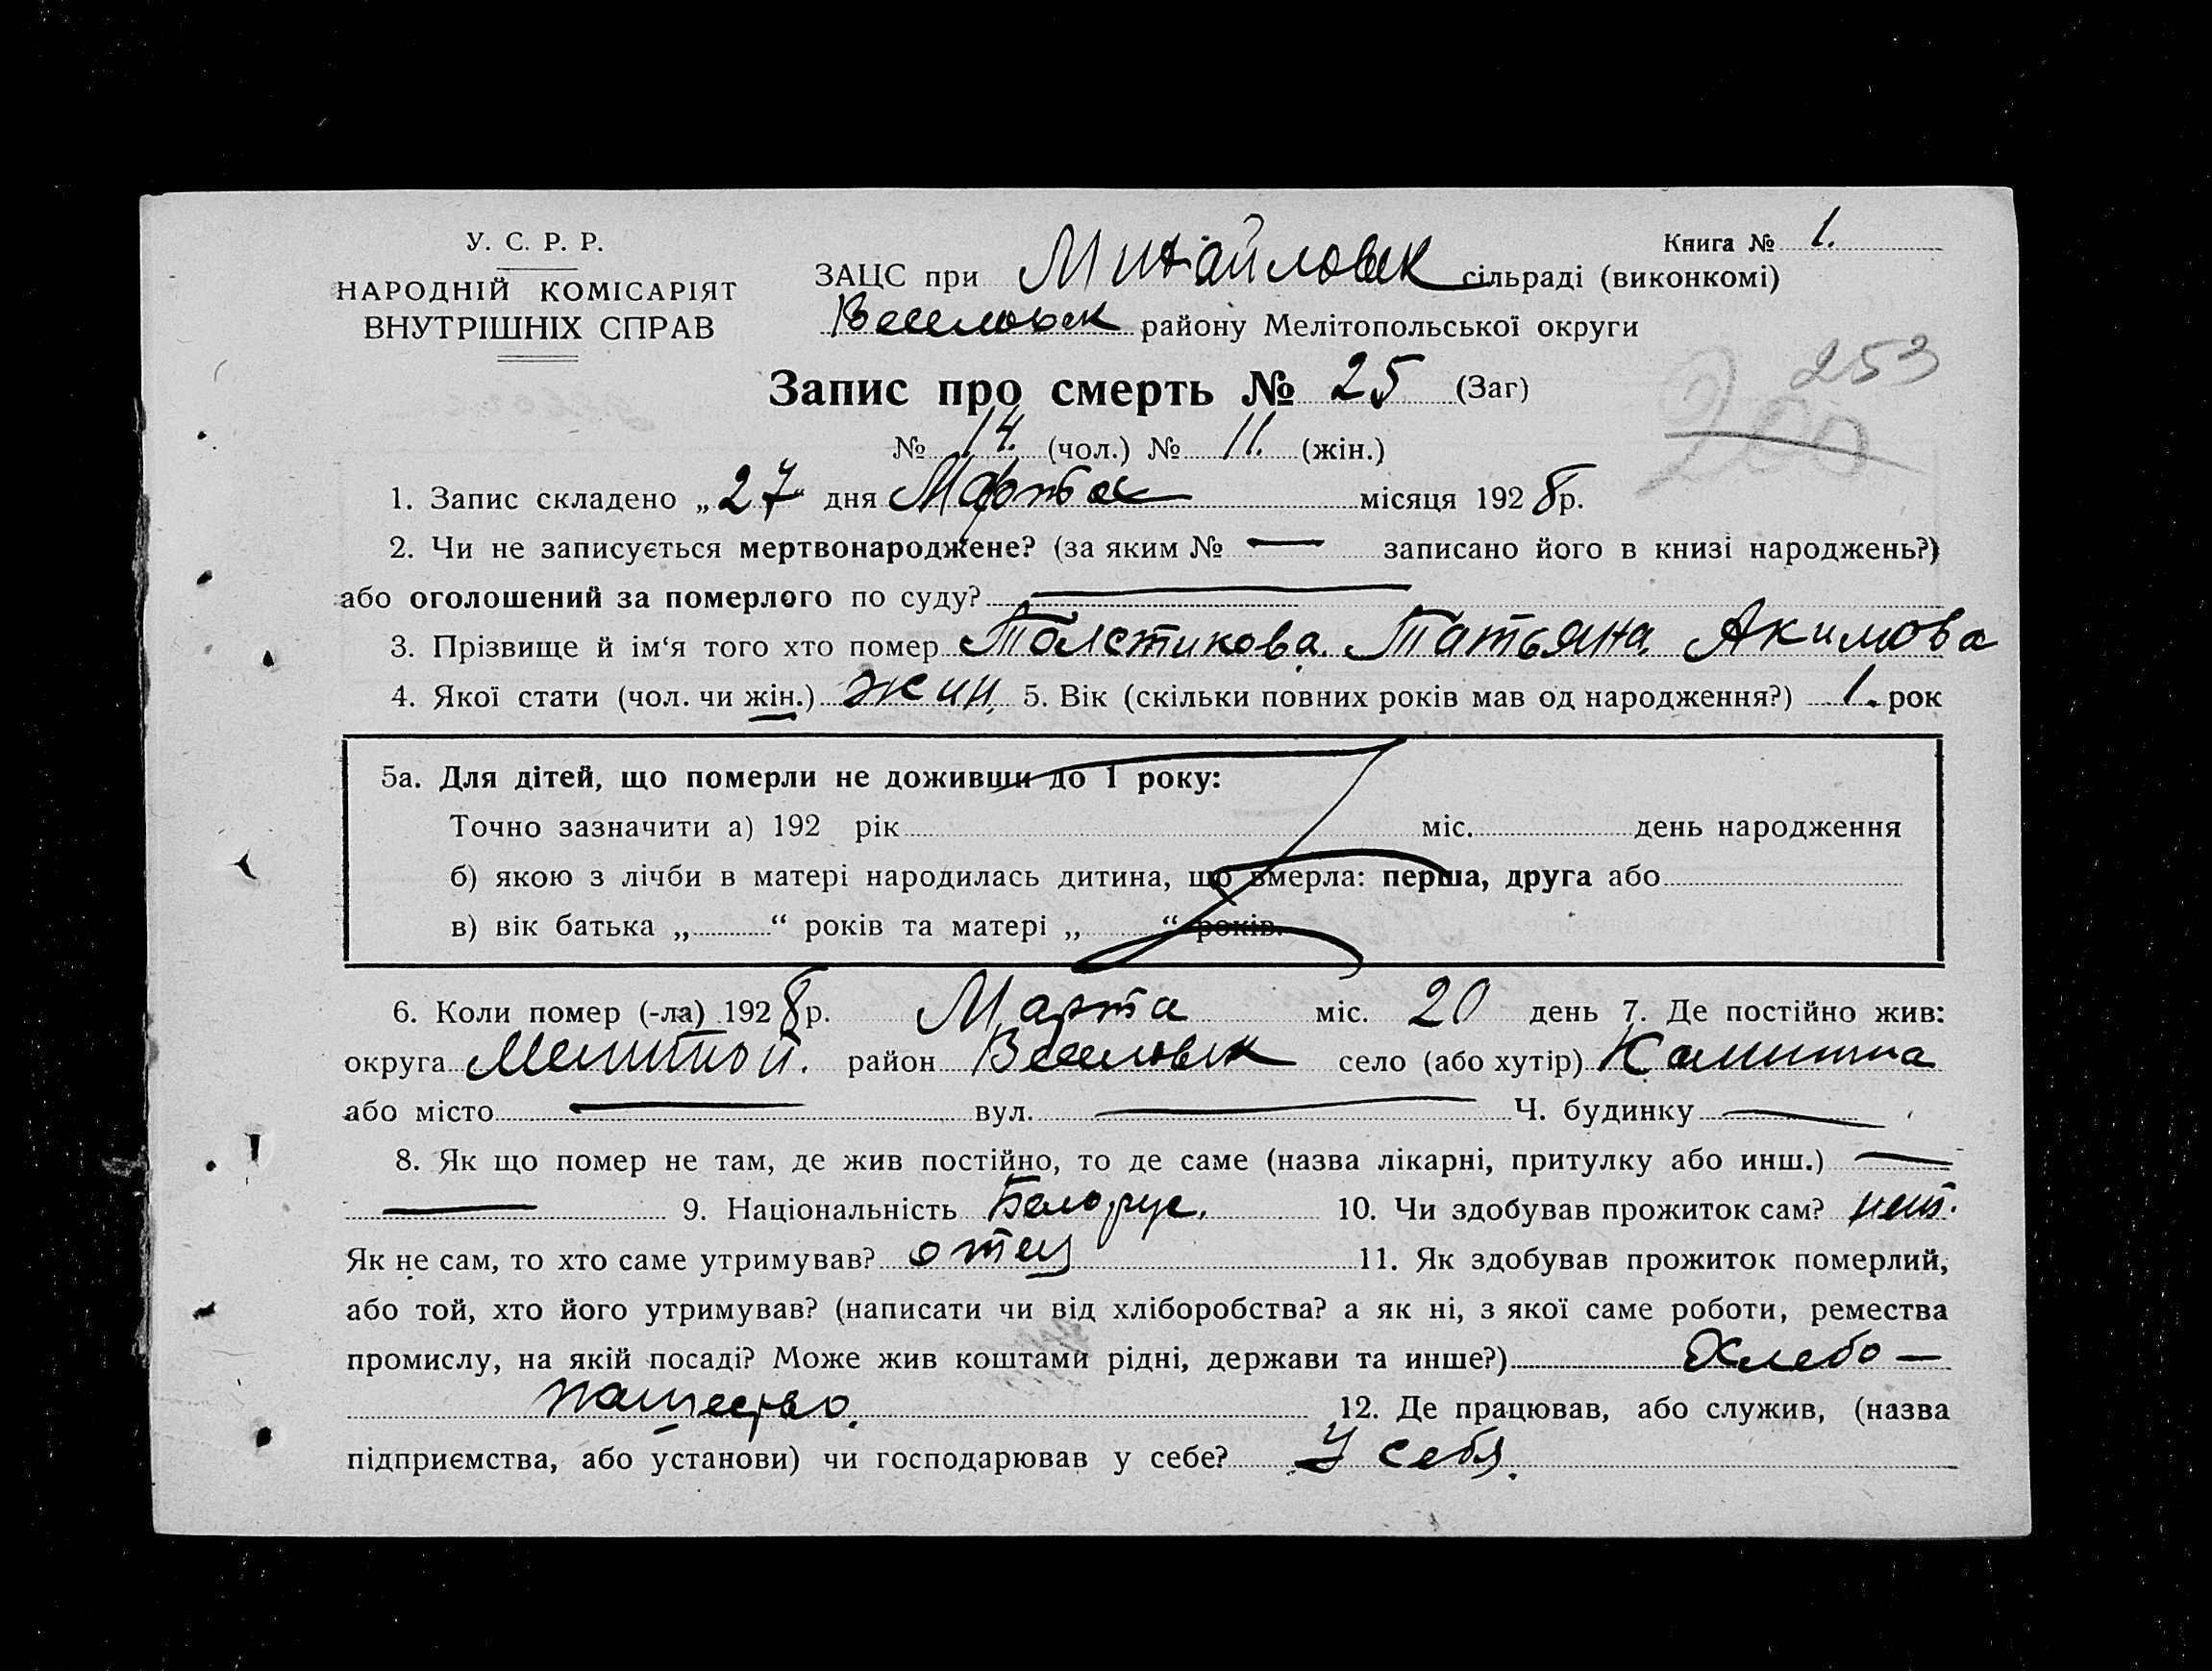 У. С. Р. Р.
НАРОДНІЙ КОМІСАРІЯТ
ВНУТРІШНІХ СПРАВ
Книга № 1.
ЗАЦС при Михайловск сільраді (виконкомі)
Веселовск району Мелітопольської округи
253
200
Запис про смерть № 25 (Заг)
№ 14. (чол.) № 11. (жін.)
1. Запис складено „27“ дня Марта місяця 1928р.
2. Чи не записується мертвонароджене? (за яким № — записано його в книзі народжень?)
або оголошений за померлого по суду? —
3. Прізвище й ім‘я того хто помер Толстикова Татьяна Акимова
4. Якої стати (чол. чи жін.) жин. 5. Вік (скільки повних років мав од народження?) 1. рок
5а. Для дітей, що померли не доживши до 1 року:
Точно зазначити а) 192 рік міс. день народження
б) якою з лічби в матері народилась дитина, що вмерла: перша, друга або
в) вік батька „ “ років та матері „ “ років.
6. Коли помер (-ла) 1928р. Марта міс. 20 день 7. Де постійно жив:
округа район Веселовск село (або хутір)
або місто — вул. — Ч. будинку —
8. Як що помер не там, де жив постійно, то де саме (назва лікарні, притулку або инш.) —
— 9. Національність Белорус. 10. Чи здобував прожиток сам? нет.
Як не сам, то хто саме утримував? отец 11. Як здобував прожиток померлий,
або той, хто його утримував? (написати чи від хліборобства? а як ні, з якої саме роботи, ремества
промислу, на якій посаді? Може жив коштами рідні, держави та инше?) Хлебо—
пашество. 12. Де працював, або служив, (назва
підприємства, або установи) чи господарював у себе? У себя.